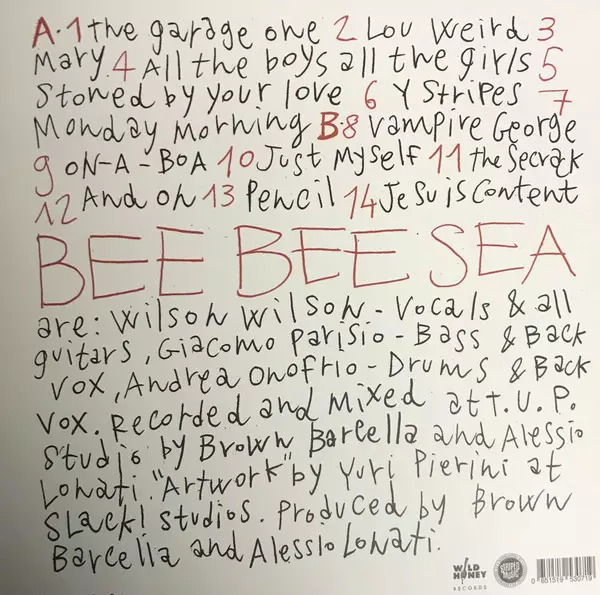 A. 1 the garage one 2 Lou Weird 3
Mary 4 All the boys all the girls 5
Stoned by your love 6 Y Stripes 7
Monday Morning B. 8 Vampire George
9 ON-A-BOA 10 Just Myself 11 the Secrak
12 And oh 13 Pencil 14 Je suis content
BEE BEE SEA
are: Wilson Wilson - Vocals & all
guitars, Giacomo Parisio - Bass & Back
vox, Andrea Onofrio - Drums & Back
vox. Recorded and Mixed at T.U.P.
Studio by Brown Barcella and Alessio
Lonati. "Artwork" by Yuri Pierini at
SLack! Studios. Produced by Brown
Barcella and Alessio Lonati.
WILD HONEY
RECORDS
0 651519 530719